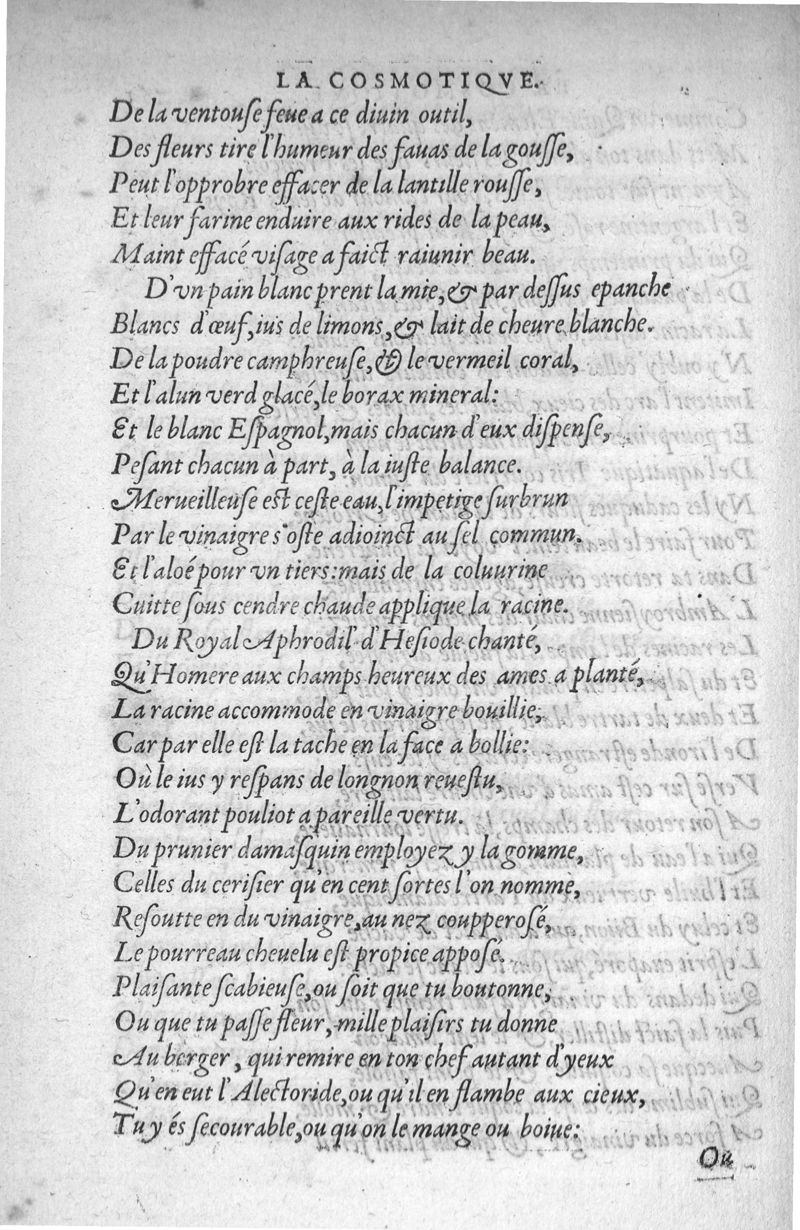 LA COSMOTIQVE.
De la ventouſe feue a ce diuin outil,
Des fleurs tire l'humeur des fauas de la gouſſe,
Peut l'opprobre effacer de la lantille rouſſe,
Et leur farine enduire aux rides de la peau,
Maint effacé viſage a faict raiunir beau.
D'vn pain blanc prent la mie, & par deſſus epanche
Blancs d'œuf, ius de limons, & lait de cheure blanche.
De la poudre camphreuſe, & le vermeil coral,
Et l'alun verd glacé, le borax mineral:
Et le blanc Eſpagnol, mais chacun d'eux diſpenſe,
Peſant chacun à part, à la iuſte balance.
Merueilleuſe eſt ceſte eau, l'impetige ſurbrun
Par le vinaigre s'oſte adioinct au ſel commun.
Et l'aloé pour vn tiers: mais de la coluurine
Cuitte ſous cendre chaude applique la racine.
Du Royal Aphrodil' d'Heſiode chanté,
Qu'Homere aux champs heureux des ames a planté,
La racine accommode en vinaigre bouillie;
Car par elle eſt la tache en la face a bollie:
Où le ius y reſpans de longnon reueſtu,
L'odorant pouliot a pareille vertu.
Du prunier damaſquin employez y la gomme,
Celles du ceriſier qu'en cent ſortes l'on nomme,
Reſoutte en du vinaigre, au nez coupperoſé,
Le pourreau cheuelu eſt propice appoſé.
Plaiſante ſcabieuſe, ou ſoit que tu boutonne,
Ou que tu paſſe fleur, mille plaiſirs tu donne
Au berger, qui remire en ton chef autant d'yeux
Qu'en eut l'Alectoride, ou qu'il en flambe aux cieux,
Tu y és ſecourable, ou qu'on le mange ou boiue:
Ou